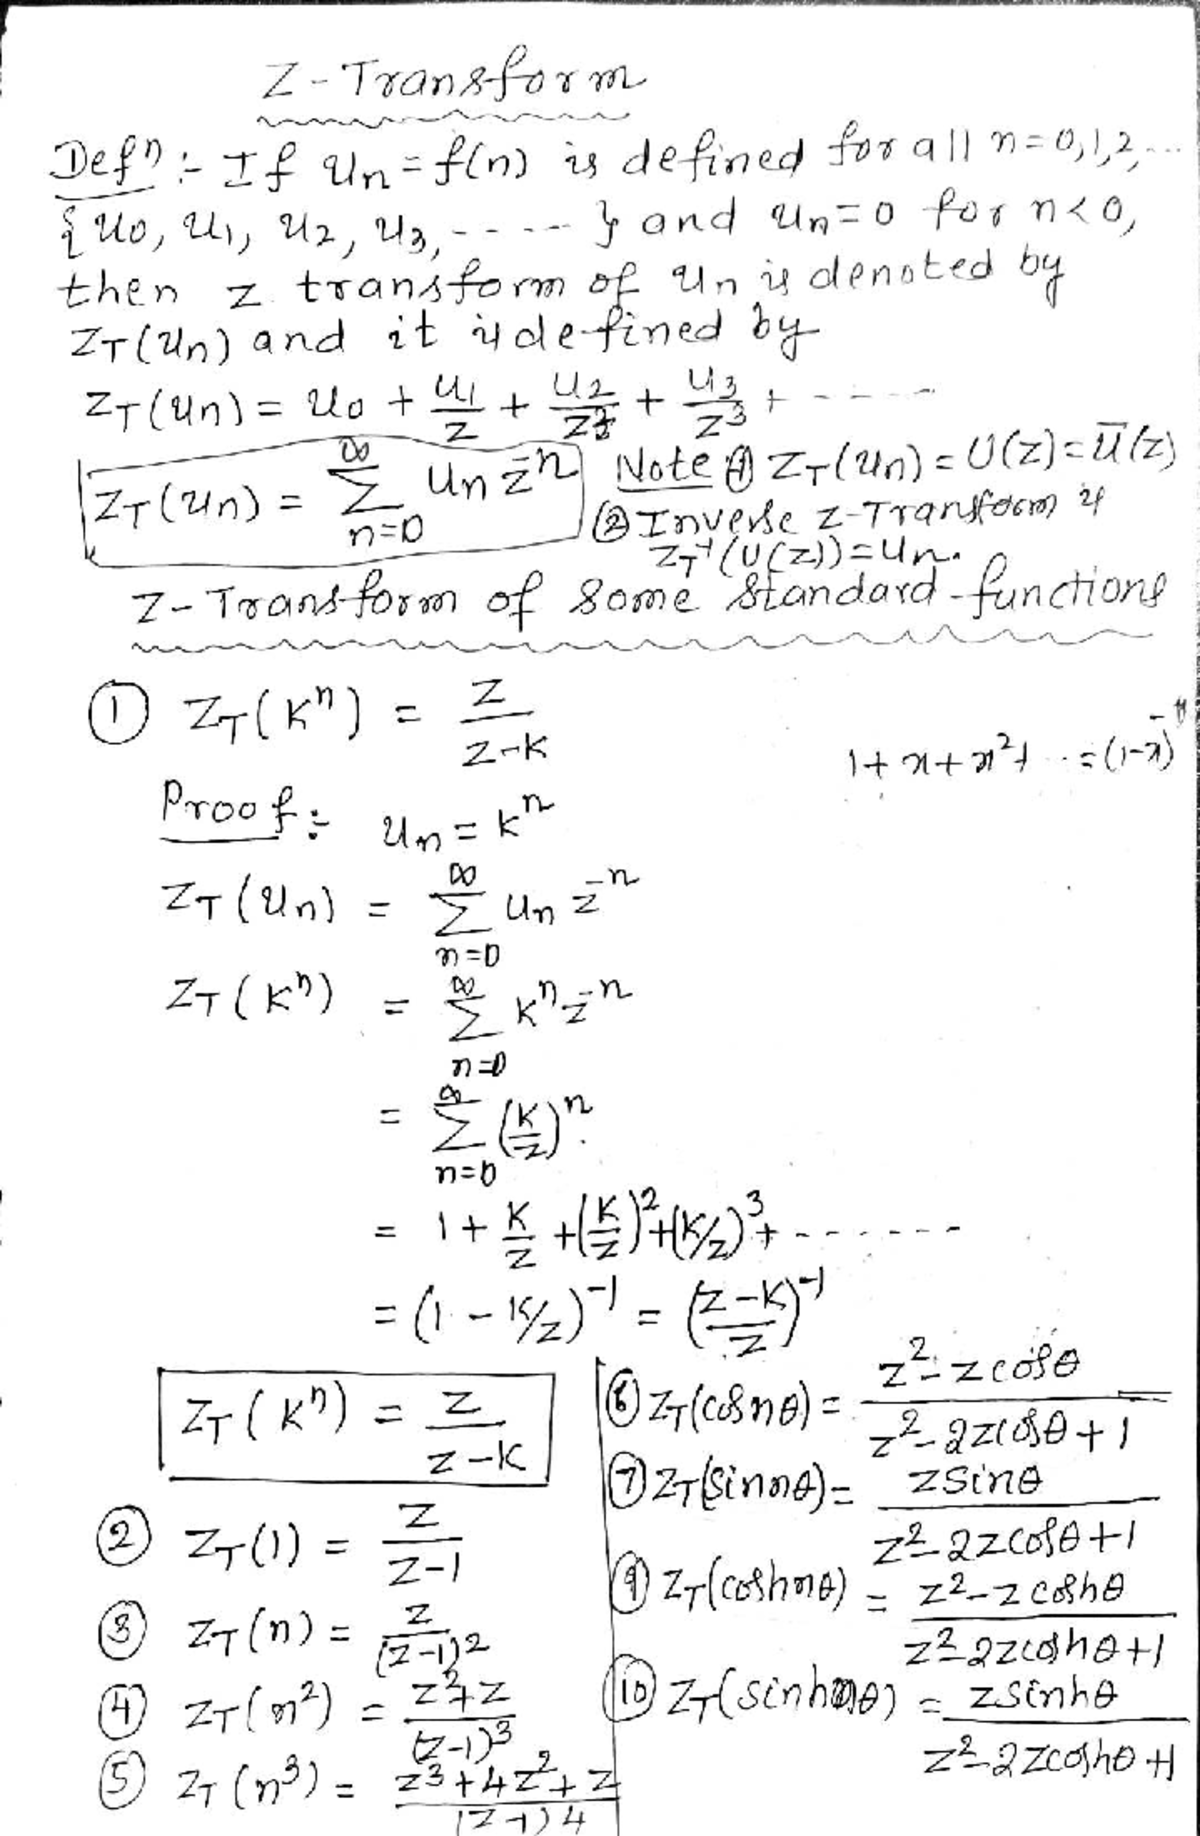 Z-Transform
Defⁿ :- If uₙ = f(n) is defined for all n=0,1,2,...
{u₀, u₁, u₂, u₃, ----- } and uₙ=0 for n<0,
then z transform of uₙ is denoted by
Z_T(uₙ) and it is defined by
Z_T(uₙ) = u₀ + u₁/z + u₂/z² + u₃/z³ + -----
Z_T(uₙ) = ∑_{n=0}^{∞} uₙ z⁻ⁿ
Note ① Z_T(uₙ) = U(z) = ū(z)
② Inverse z-Transform is
Z_T⁻¹(U(z)) = uₙ.
Z-Transform of some standard functions
① Z_T(kⁿ) = z/(z-k)
1+x+x²+ ... = (1-x)⁻¹
Proof :- uₙ = kⁿ
Z_T(uₙ) = ∑_{n=0}^{∞} uₙ z⁻ⁿ
Z_T(kⁿ) = ∑_{n=0}^{∞} kⁿ z⁻ⁿ
= ∑_{n=0}^{∞} (k/z)ⁿ.
= 1 + k/z + (k/z)² + (k/z)³ + -------
= (1 - k/z)⁻¹ = ((z-k)/z)⁻¹
Z_T(kⁿ) = z/(z-k)
② Z_T(1) = z/(z-1)
③ Z_T(n) = z/(z-1)²
④ Z_T(n²) = (z²+z)/(z-1)³
⑤ Z_T(n³) = (z³+4z²+z)/(z-1)4
⑥ Z_T(cosnθ) = (z²-zcosθ)/(z²-2zcosθ+1)
⑦ Z_T(sinnθ) = zsinθ/(z²-2zcosθ+1)
⑨ Z_T(coshnθ) = (z²-zcoshθ)/(z²-2zcoshθ+1)
⑩ Z_T(sinhnθ) = zsinhθ/(z²-2zcoshθ+1)